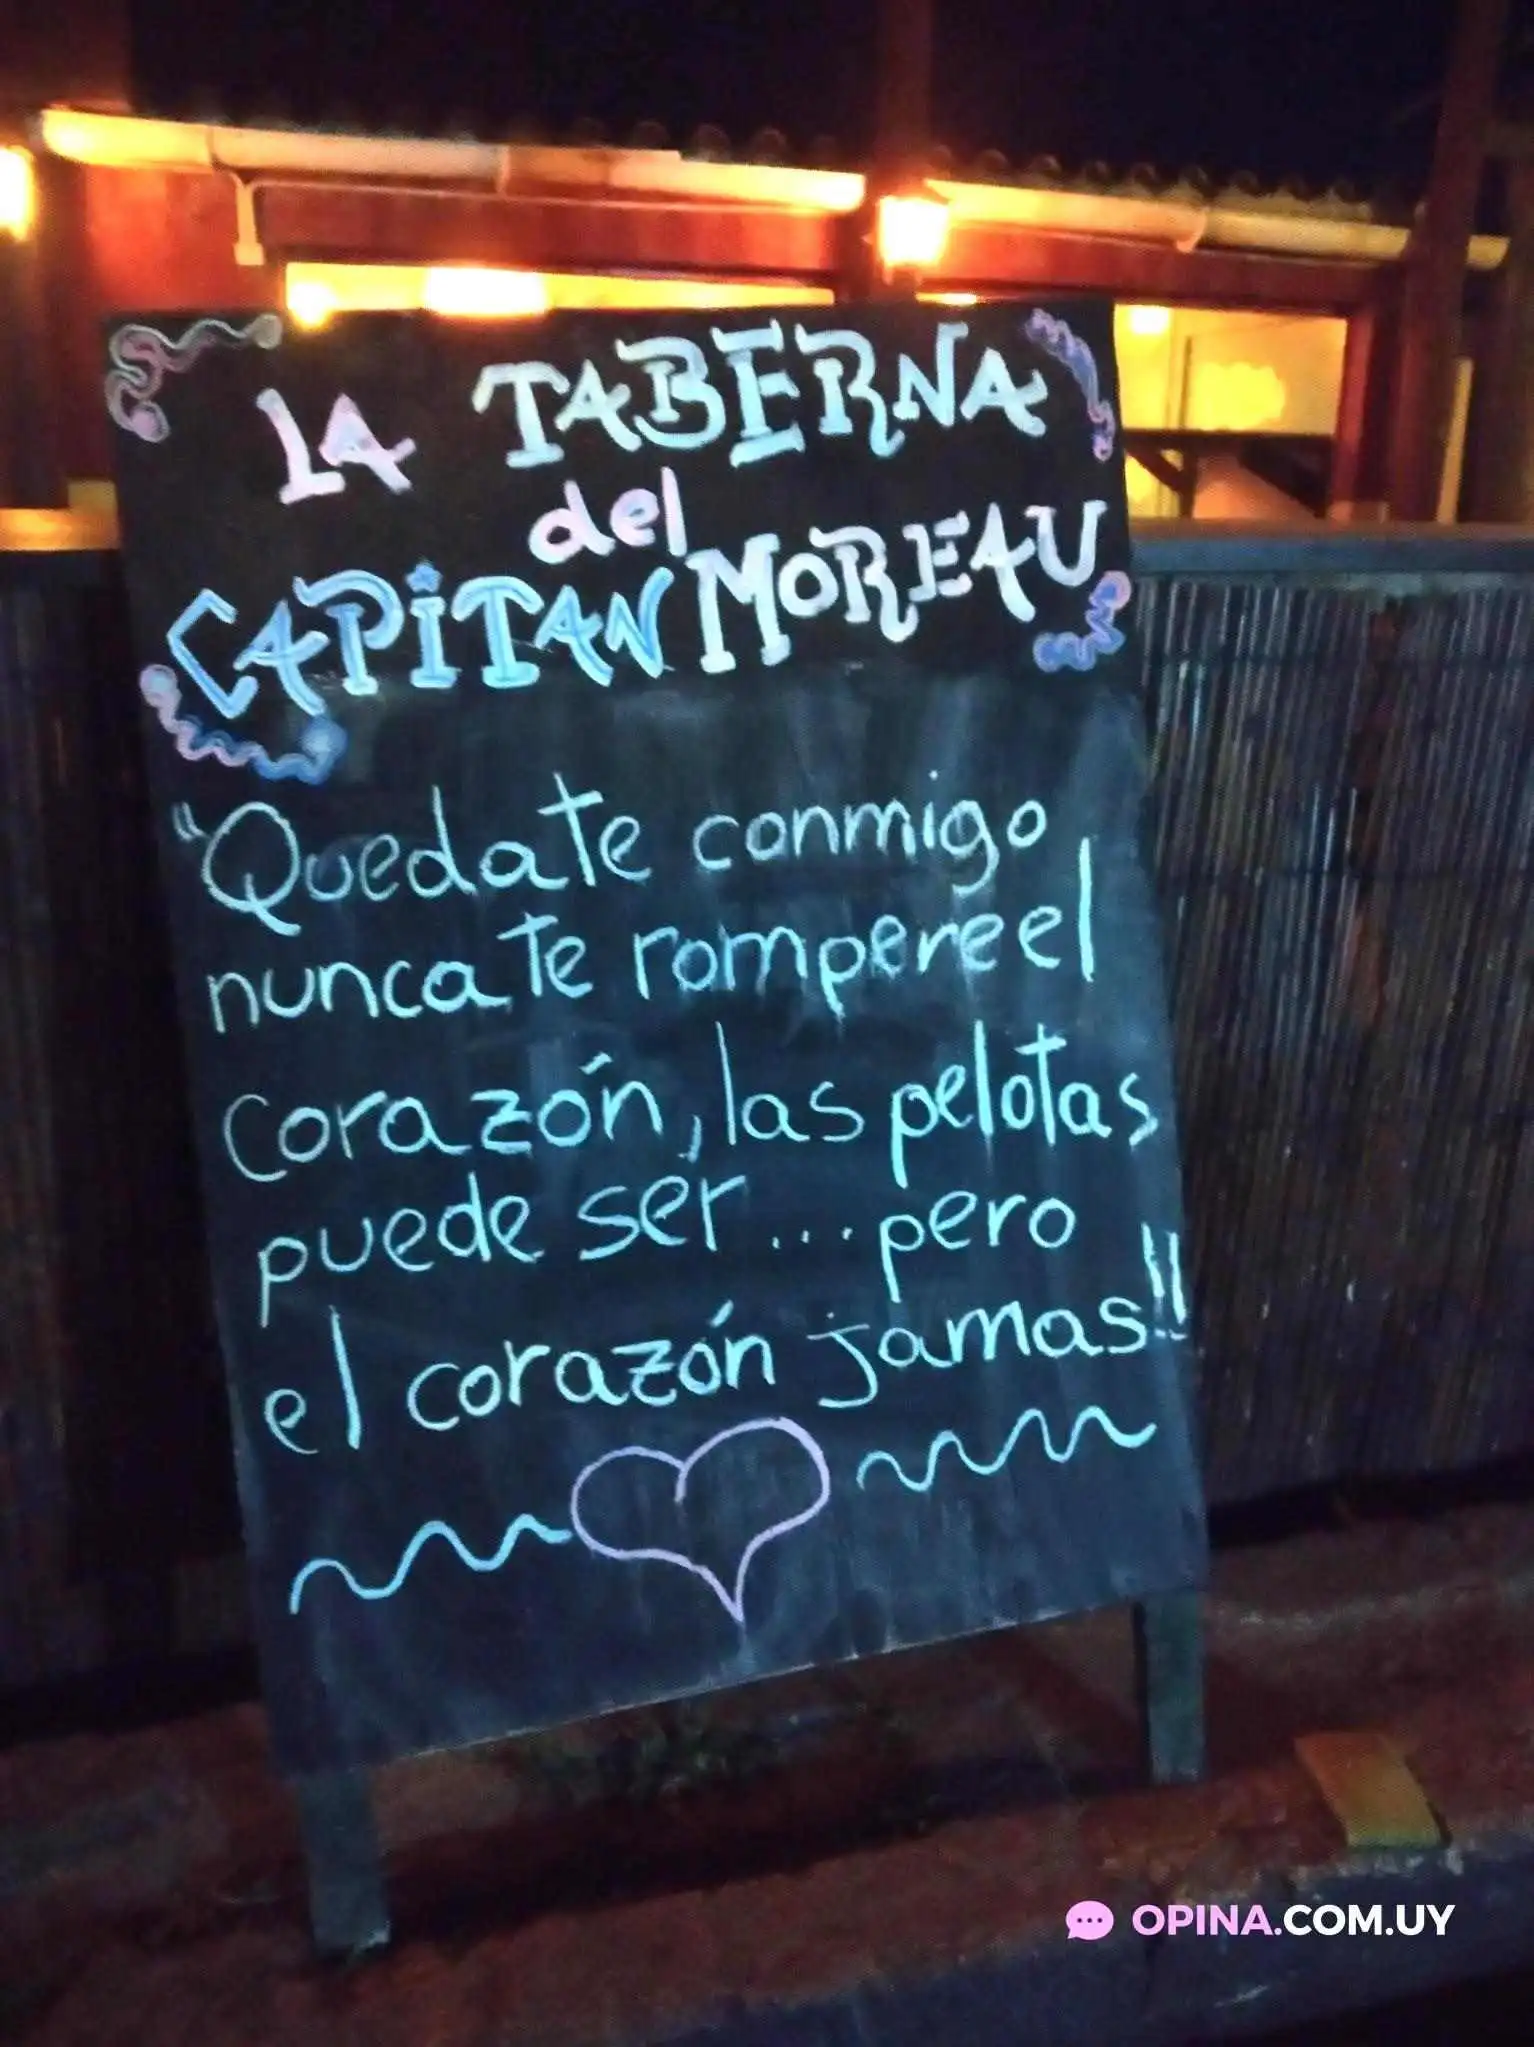 LA TABERNA
del
CAPiTAN MOREAU
"Quedate conmigo
nunca te rompere el
corazón, las pelotas
puede ser... pero
el corazón jamas!!
OPINA.COM.UY